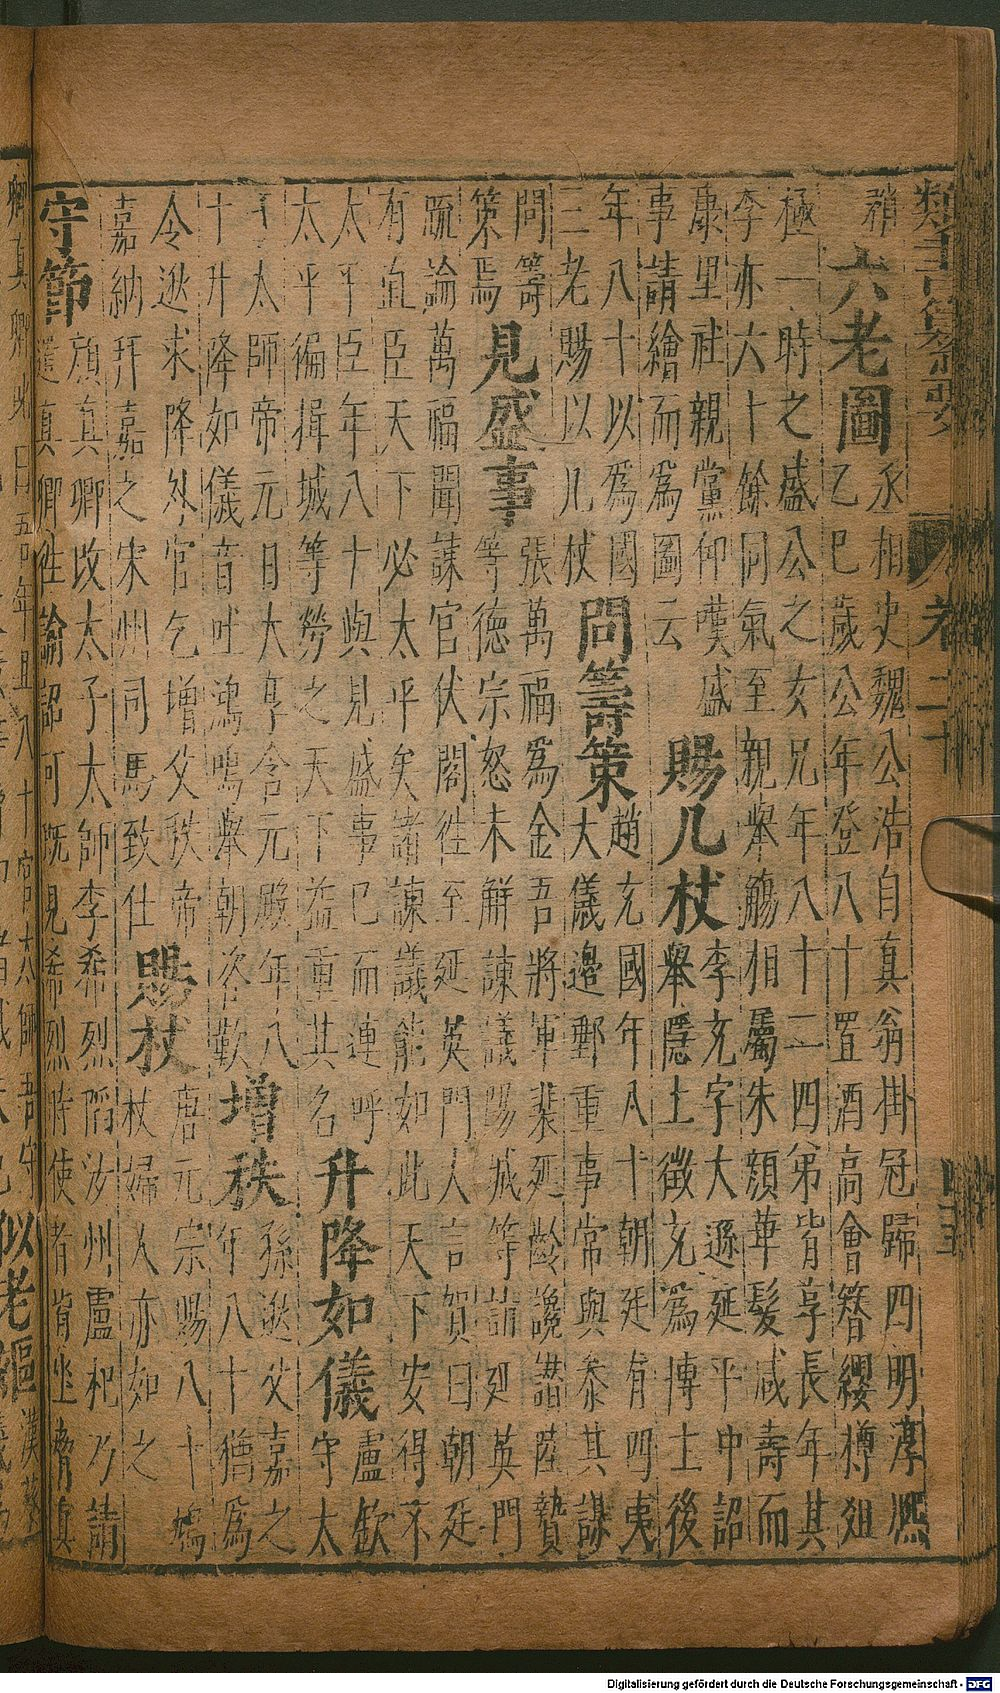 類書纂要 卷二十
稍
六老圖
丞相史魏公浩自真翁掛冠歸四明淳熙
乙巳歲公年登八十置酒高會簪纓樽俎
極一時之盛公之女兄年八十二四弟皆享長年其
李亦六十餘同氣至親舉觴相屬朱顏華髮咸壽而
康里社親黨仰羨盛
事請繪而為圖云
賜几杖
李充字大遜延平中詔
舉隱士徵充為博士後
年八十以為國
三老賜以几杖
問籌策
趙充國年八十朝廷有四夷
大儀邊鄙重事常與參其謀
問籌
策焉
見盛事
張萬福為金吾將軍裴延齡讒譖陸贄
等德宗怒未解諫議陽城等請延英門
䟽論萬福聞諫官伏閣徃至延英門人言賀曰朝廷
有直臣天下必太平矣諸諫議能如此天下安得不
太平臣年八十與見盛事已而連呼
太平徧揖城等勞之天下益重其名
升降如儀
盧欽
守太
子太師帝元日大享含元殿年八
十升降如儀音吐鴻鳴舉朝咨歎
增秩
孫逖父嘉之
年八十猶為
令逖求降外官乞增父秩帝
嘉納拜嘉之宋州司馬致仕
賜杖
唐元宗賜八十鳩
杖婦人亦如之
守節
顏真卿改太子太師李希烈䧟汝州盧杞乃請
遣真卿往諭詔可既見希烈時使者皆坐脅真
卿真卿叱曰吾年且八十官太師吾守
似老嫗
漢蘇
Digitalisierung gefördert durch die Deutsche Forschungsgemeinschaft - DFG